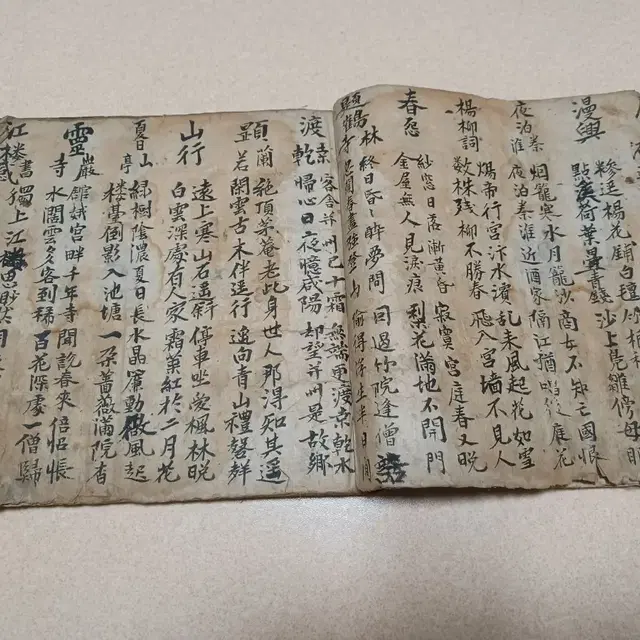 漫興
糝逕楊花鋪白氈
點溪荷葉疊青錢 沙上鳧雛傍母眠
夜泊秦淮 烟籠寒水月籠沙 商女不知亡國恨
夜泊秦淮近酒家 隔江猶唱後庭花
楊柳詞 煬帝行宮汴水濱 乱来風起花如雪
數株殘柳不勝春 飛入宮墻不見
春怨 紗窓日落漸黃昏 寂寞空庭春又晚
金屋無人見淚痕 梨花滿地不開門
題鶴林寺 終日昏昏醉夢間 因過竹院逢僧話
忽聞春盡强登山 偷得浮生半日閒
渡桑乾 客舍并州已十霜 無端更渡桑乾水
歸心日夜憶咸陽 却望并州是故鄉
題蘭若 絶頂茅菴老此身 世人那得知其逕
閒雲古木伴逕行 遥向青山禮磬聲
山行 遠上寒山石逕斜 停車坐愛楓林晚
白雲深處有人家 霜葉紅於二月花
夏日山亭 綠樹陰濃夏日長 水晶簾動微風起
樓臺倒影入池塘 一朶薔薇滿院香
靈巖寺 館娃宮畔千年寺 聞說春來倍惆悵
水闊雲多客到稀 百花深處一僧歸
江樓書感 獨上江樓思眇然